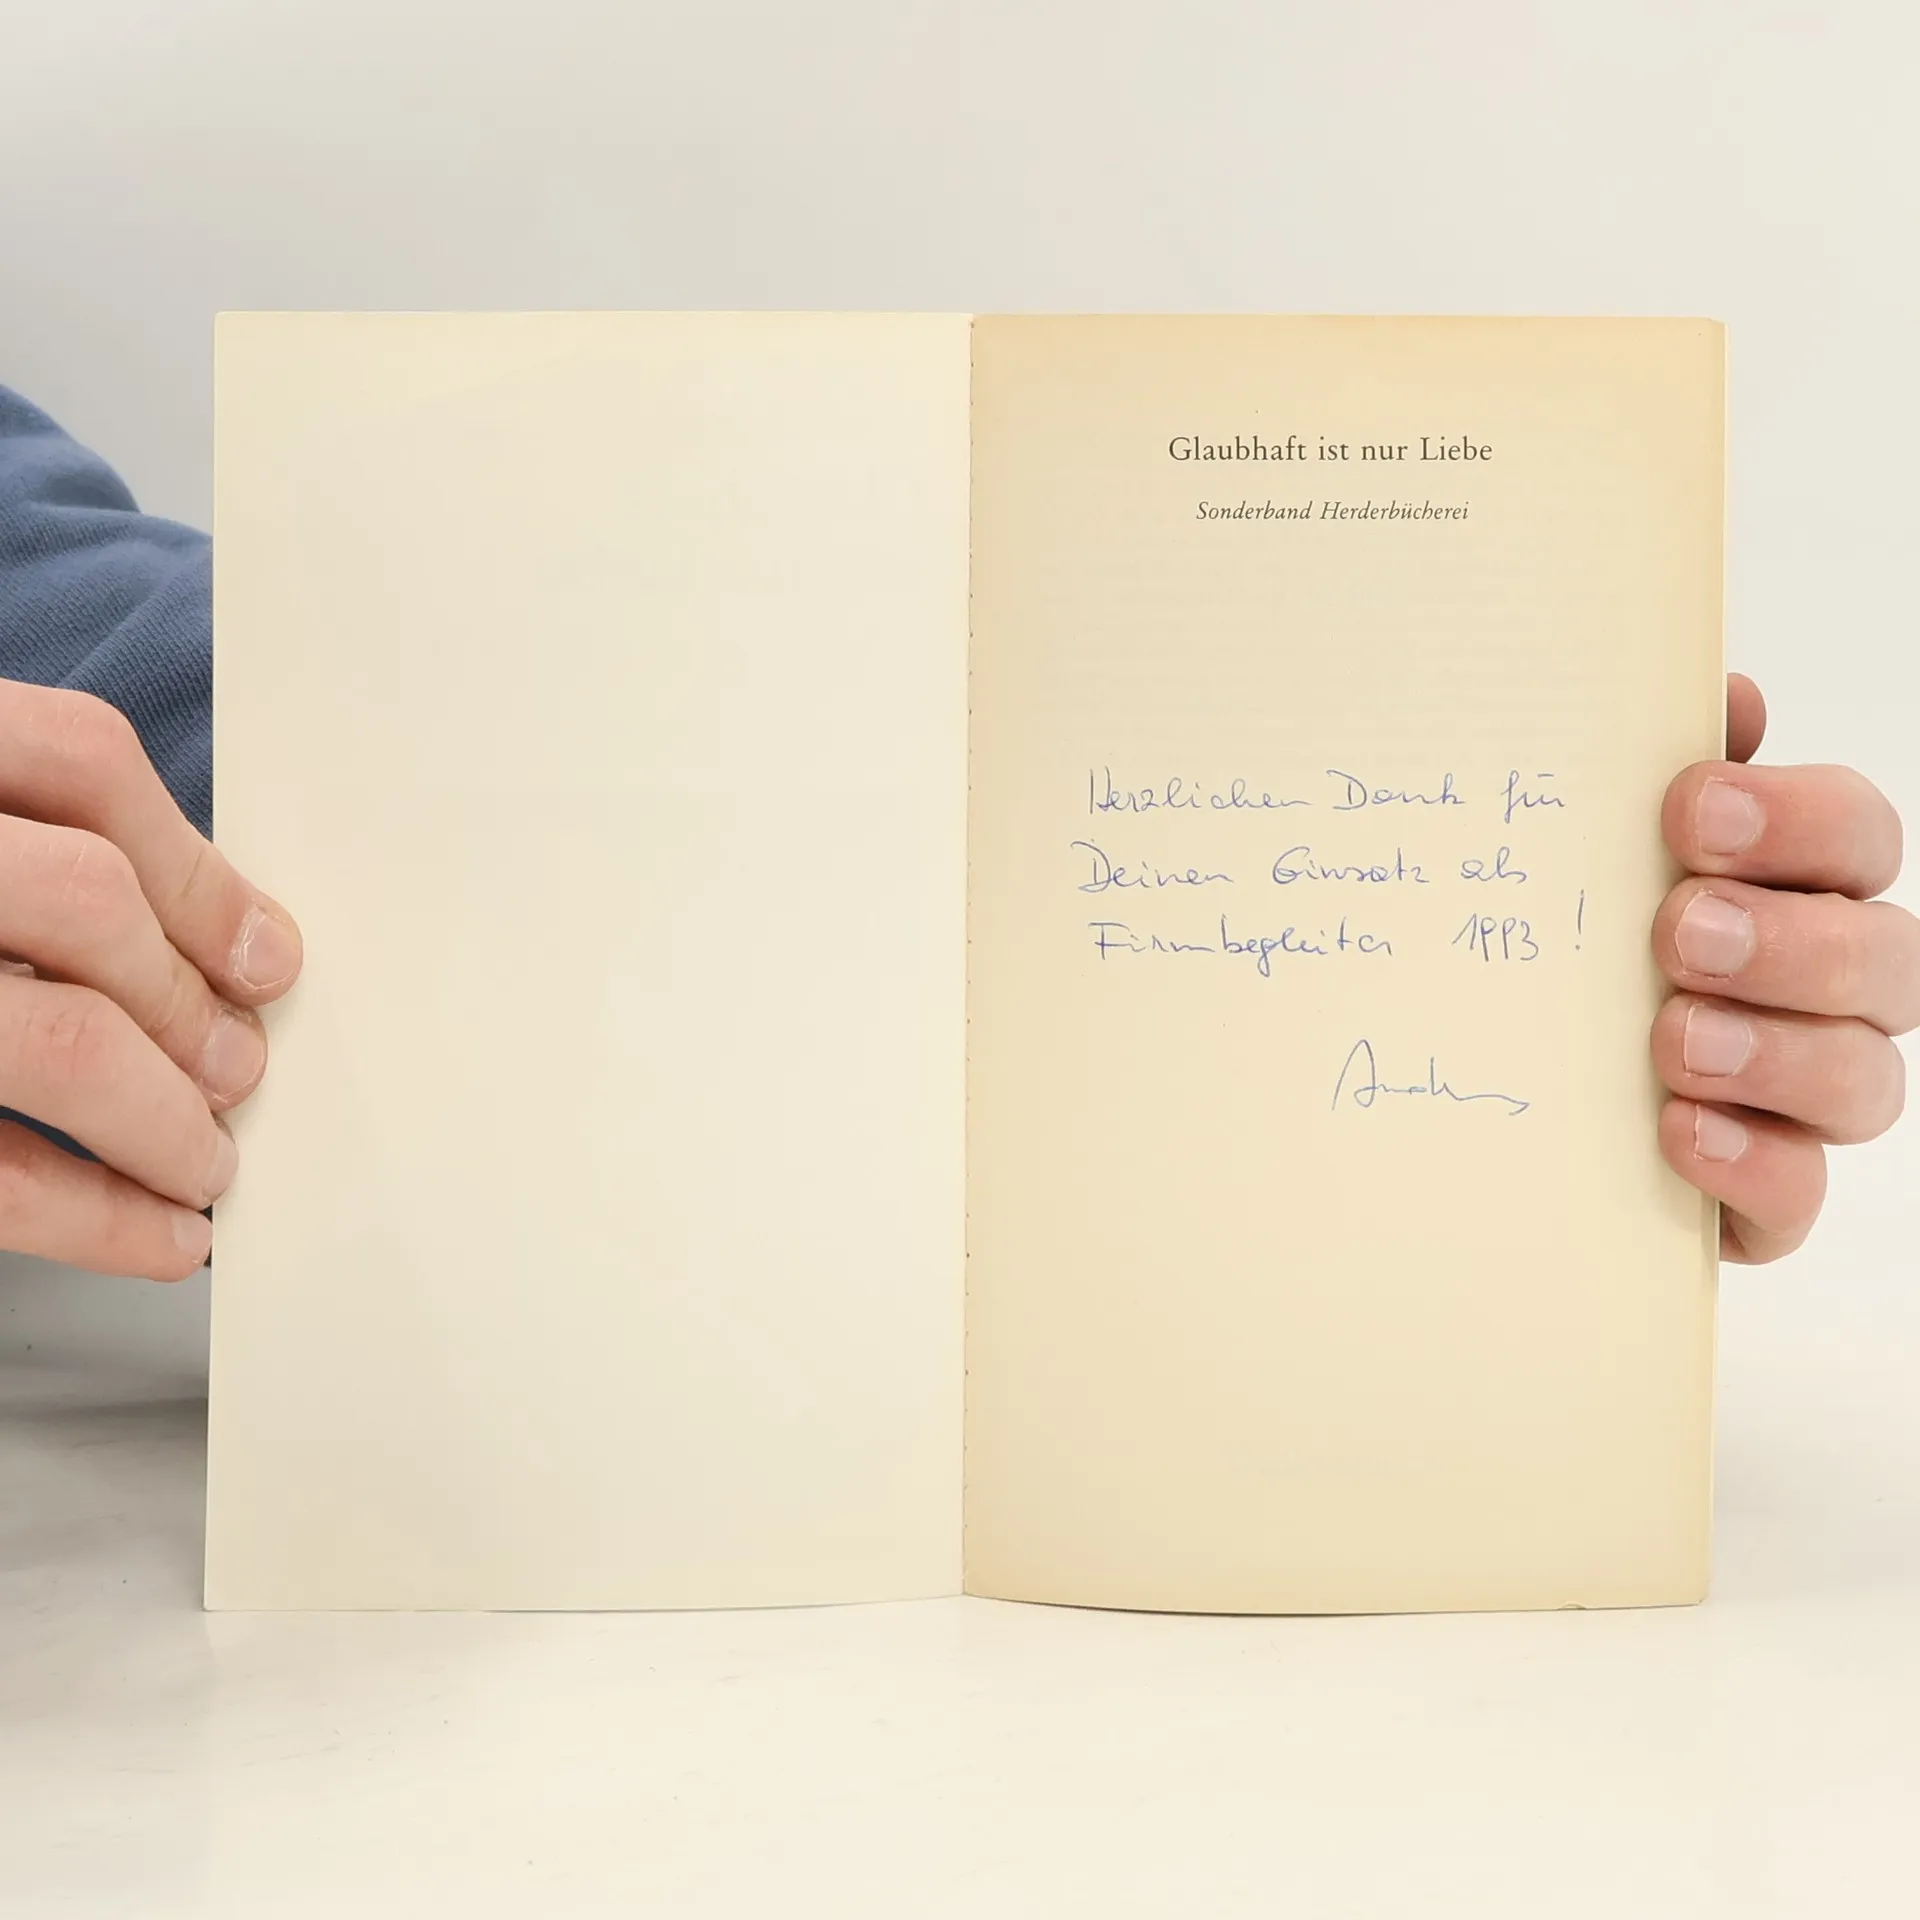 Glaubhaft ist nur Liebe
Sonderband Herderbücherei
Herzlichen Dank für
Deinen Einsatz als
Firmbegleiter 1993 !